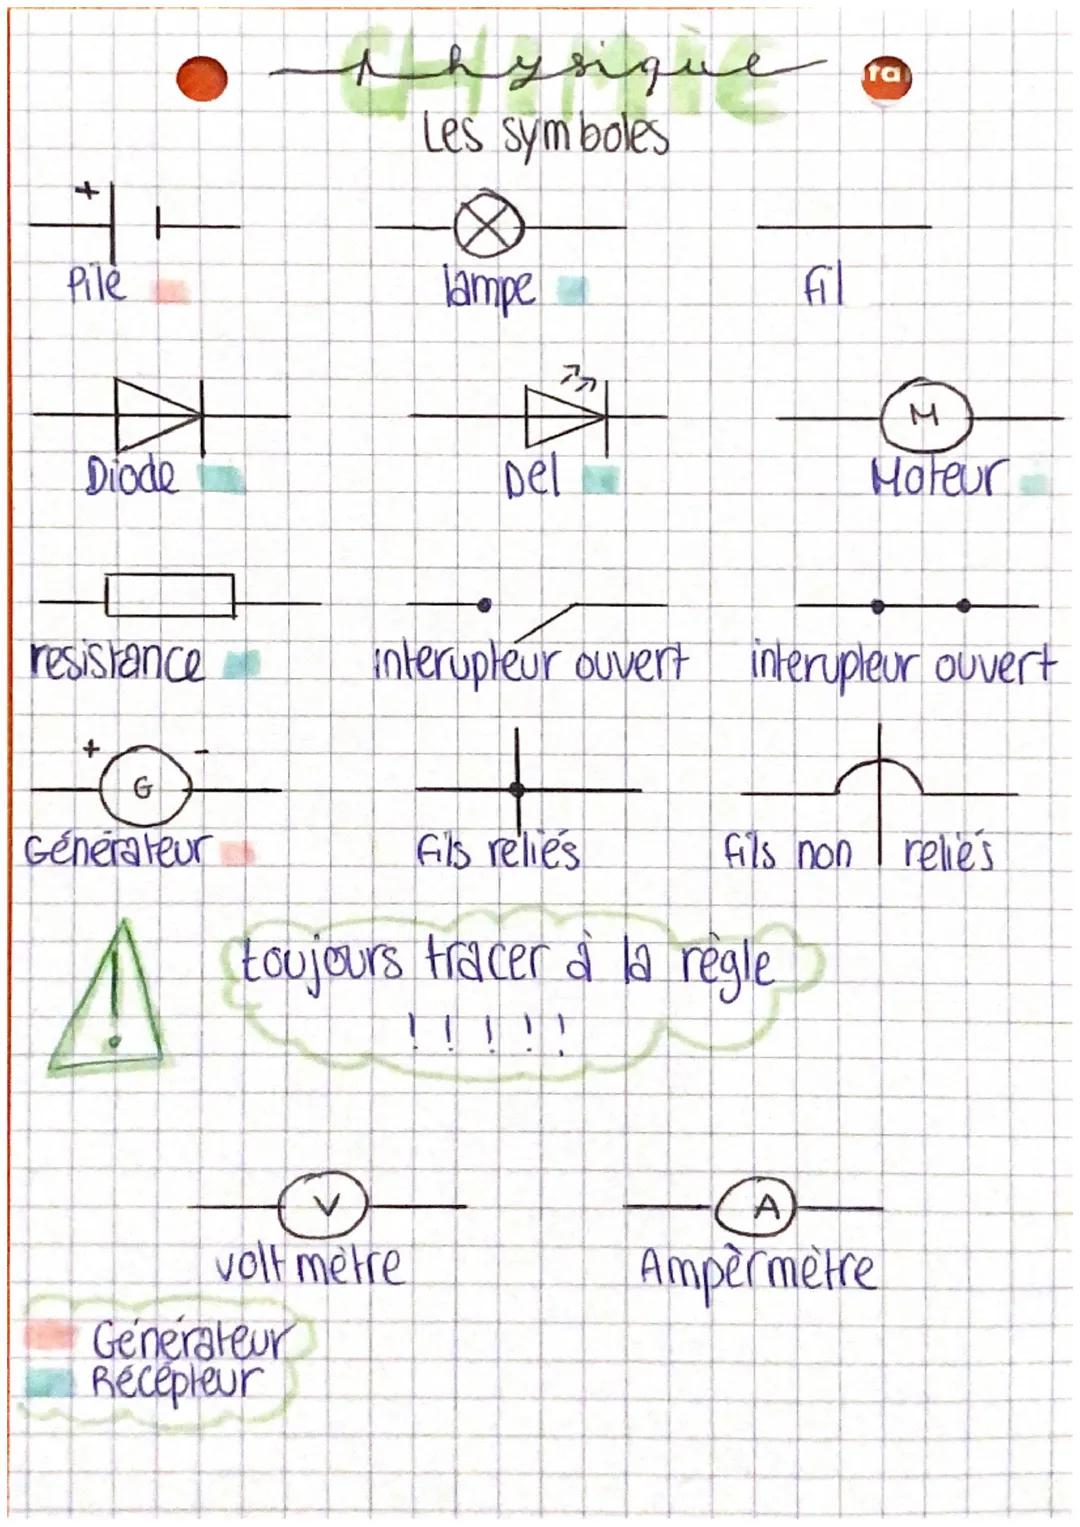 CHIMIE
Physique
ta
Les symboles
+
Pile
lampe
fil
M
Diode
Del
Moteur
resistance
interupteur ouvert
interupteur ouvert
+ G -
Générateur
fils reliés
fils non reliés
!
toujours tracer à la règle
! ! ! ! !
V
A
voltmètre
Ampèrmètre
Générateur
Récépteur